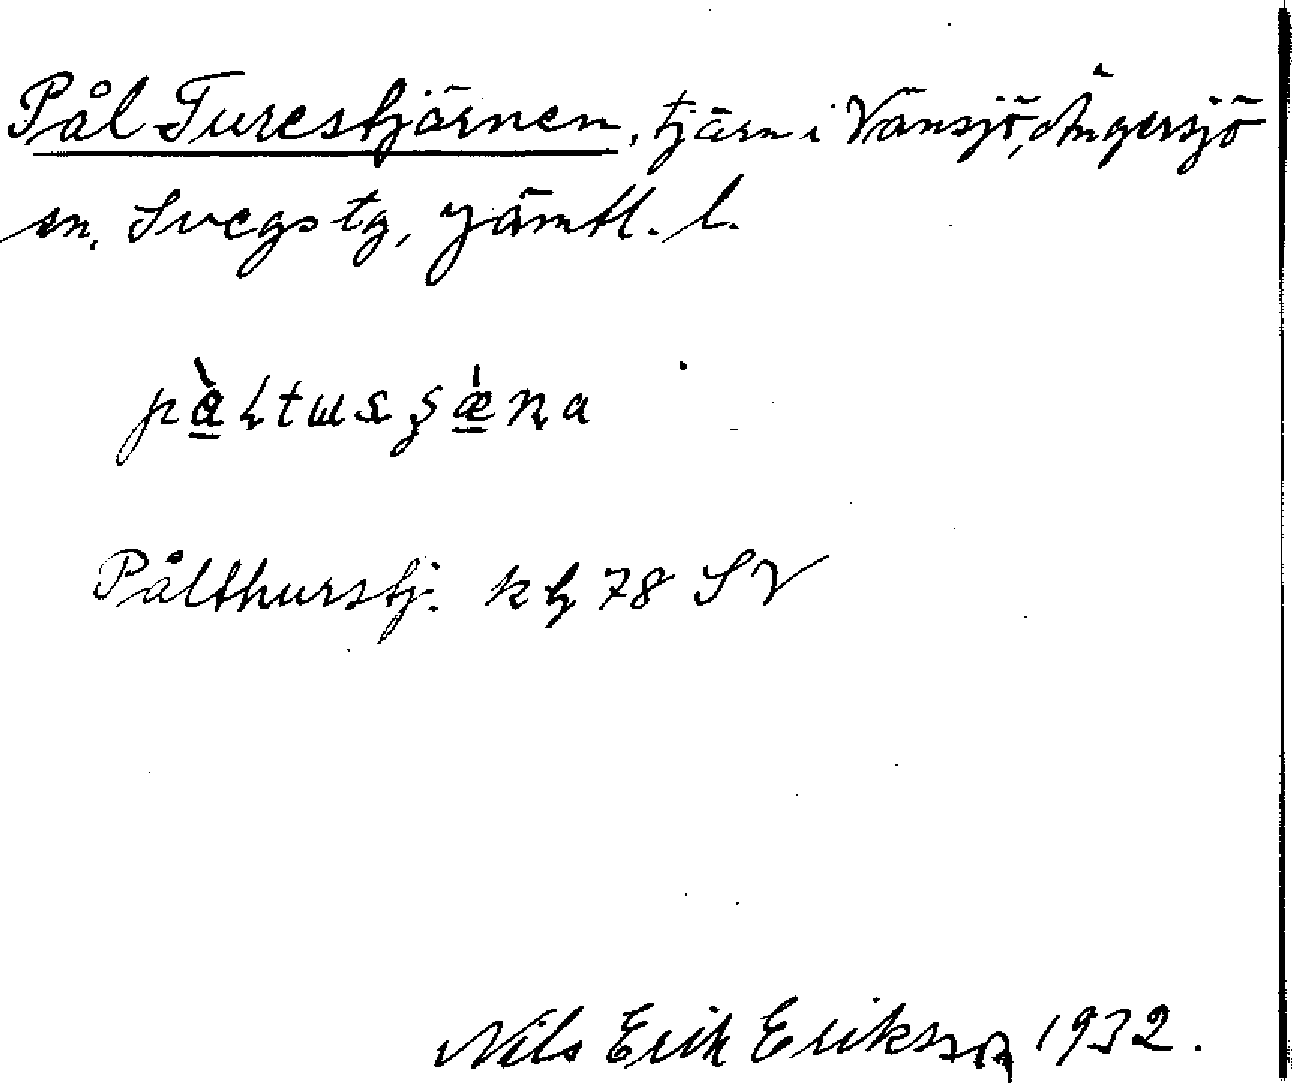 Pål Turestjärnen, tjärn i Vänsjö, Ängersjö
sn, Svegs tg, Jämtl. l.
Pålthurstj. kb 78 SV
Nils Erik Eriksson 1932.